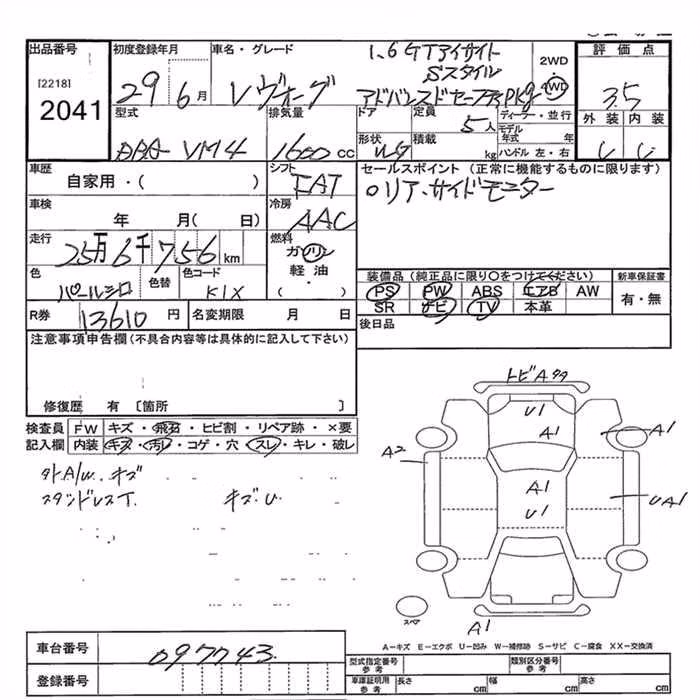 出品番号 初度登録年月 車名・グレード 1.6GTアイサイト 2WD 評価点
[2218] 29 6月 レヴォーグ Sスタイル 4WD 3.5
2041 アドバンスドセーフティPkg
型式 排気量 ドア 定員 5人 ディーラー・並行 外装 内装
DBA VM4 1600CC 形状 WG 積載 kg モデル年式 年 ハンドル 左・右
車歴 シフト セールスポイント(正常に機能するものに限ります)
自家用・( ) FAT ○リア、サイドモニター
車検 冷房
年 月( 日) AAC
走行 燃料
25万6千756km ガソリン
色 色替 色コード 軽油 装備品(純正品に限り○をつけてください) 新車保証書
パールシロ K1X ・( ) PS PW ABS エアB AW 有・無
R券 13610円 名変期限 月 日 SR ナビ TV 本革
後日品
注意事項申告欄(不具合内容等は具体的に記入して下さい)
修復歴 有 〔箇所 〕
検査員 FW キズ・飛石・ヒビ割・リペア跡・×要
記入欄 内装 キズ・汚れ・コゲ・穴・スレ・キレ・破レ
外A/W、キズ
スタンドレスT. キズ.U
トビAタタ
U1
A1
A1
A2
A1
U1
UA1
スペア
A1
A-キズ E-エクボ U-凹み W-補修跡 S-サビ C-腐食 XX-交換済
車台番号 097743
型式指定番号 参考 類別区分番号 参考
登録番号
車庫証明用 参考 長さ cm 幅 cm 高さ cm